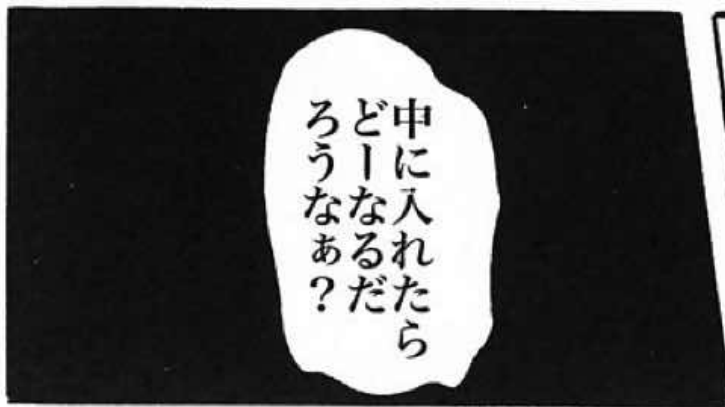 中に入れたら
どーなるだ
ろうなぁ？